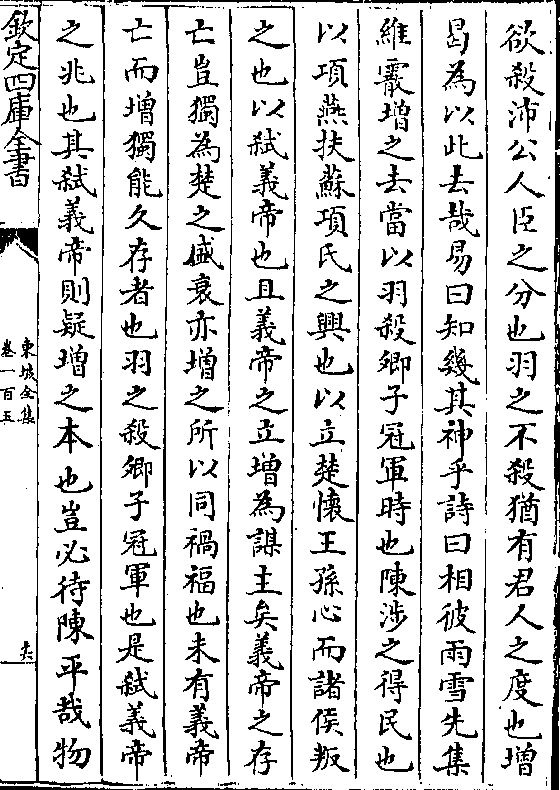 欲殺沛公人臣之分也羽之不殺猶有君人之度也增
曷為以此去哉易曰知幾其神乎詩曰相彼雨雪先集
維霰增之去當以羽殺卿子冠軍時也陳涉之得民也
以項燕扶蘇項氏之興也以立楚懷王孫心而諸侯叛
之也以弑義帝也且義帝之立增為謀主矣義帝之存
亡豈獨為楚之盛衰亦增之所以同禍福也未有義帝
亡而增獨能久存者也羽之殺卿子冠軍也是弑義帝
之兆也其弑義帝則疑增之本也豈必待陳平哉物
欽定四庫全書
東坡全集
卷一百五